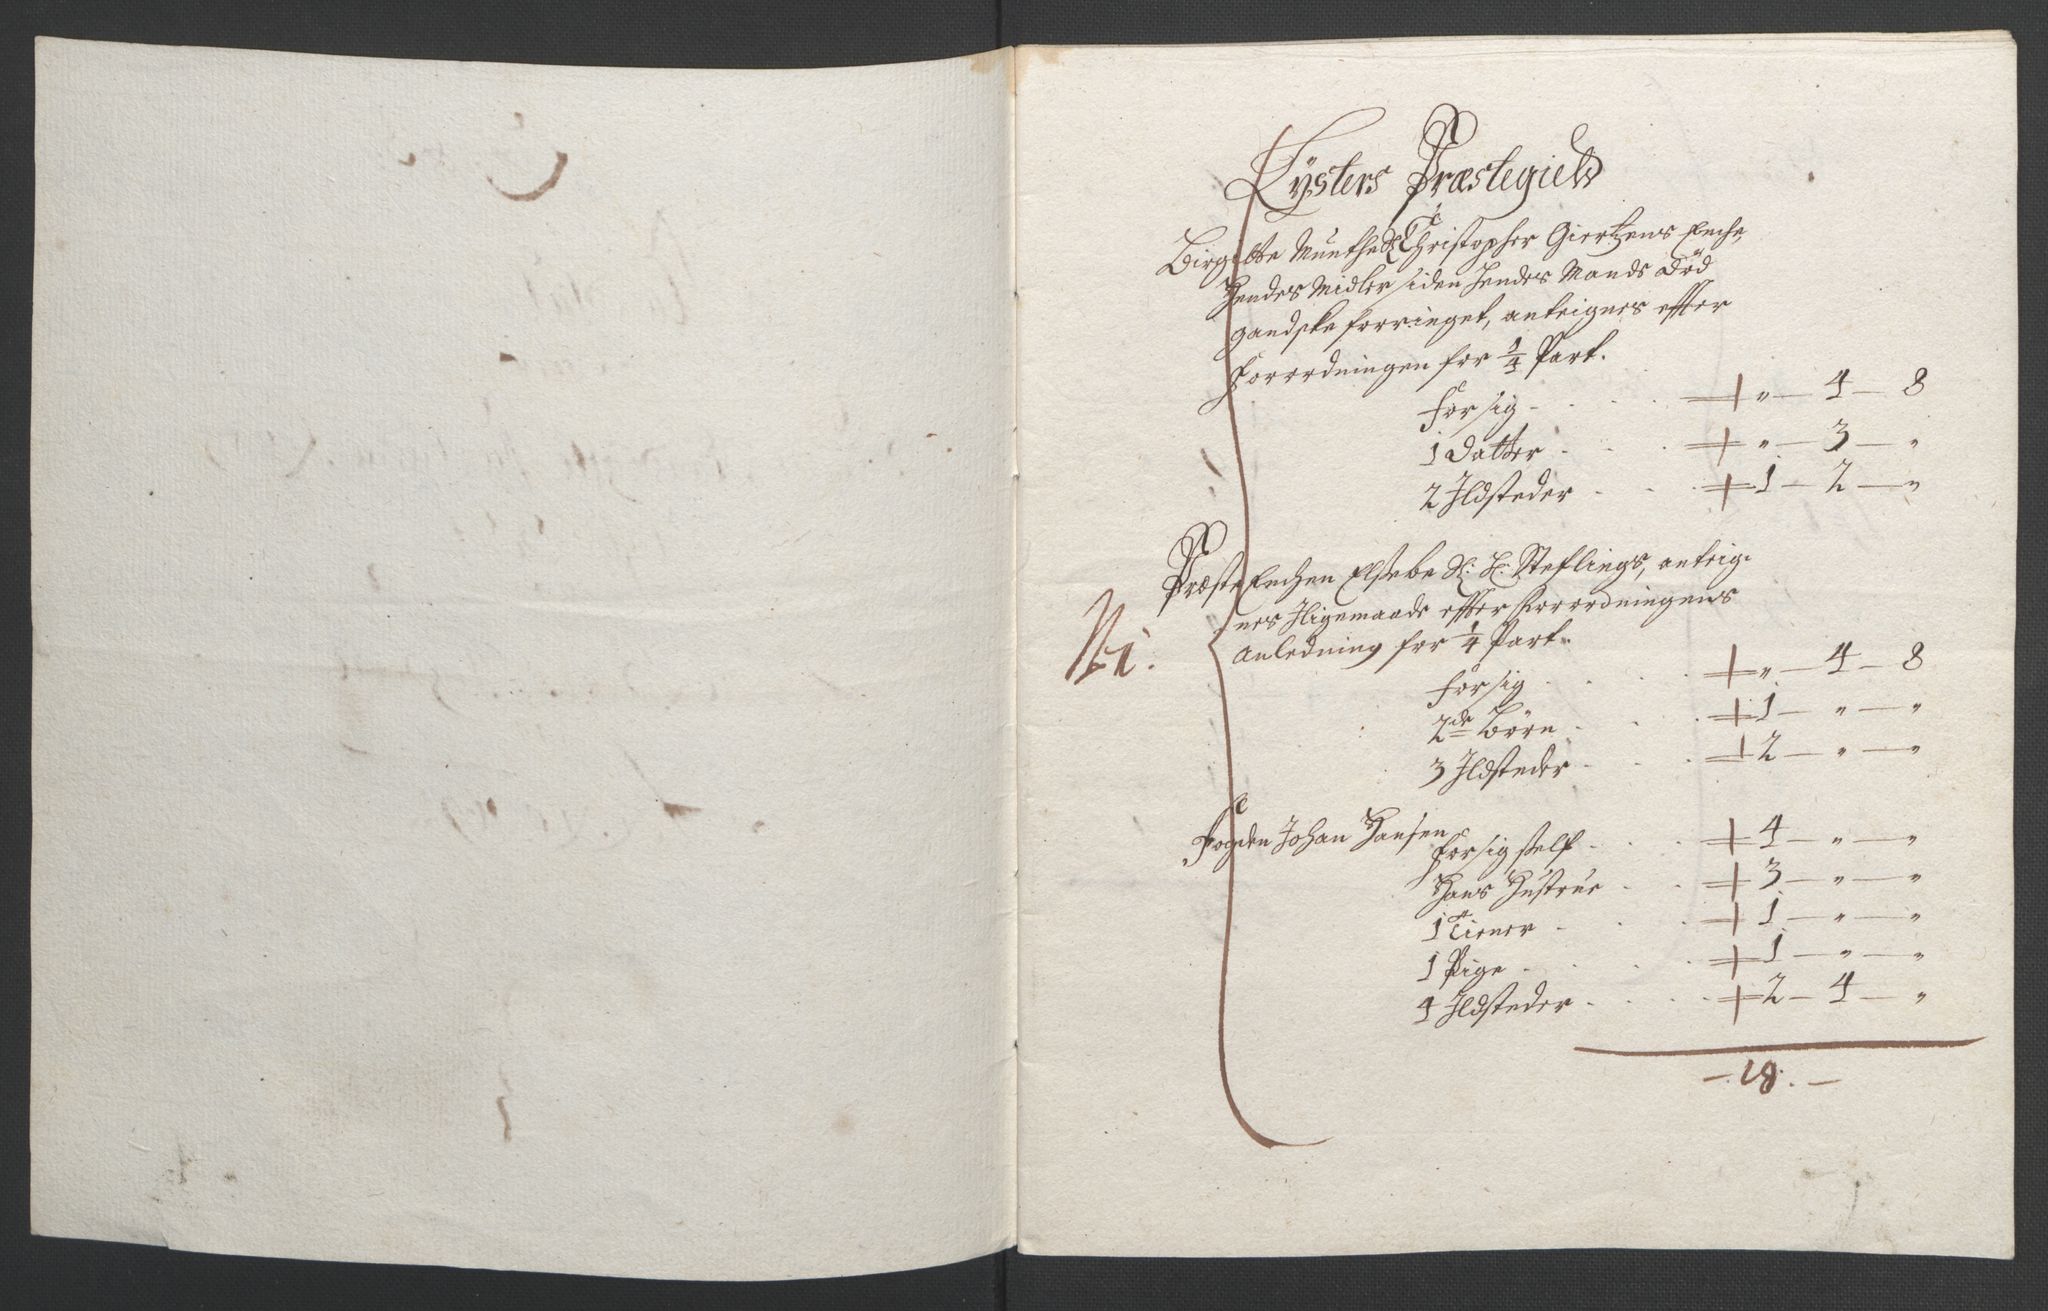 Lysters Præstegield
Birgitte Munthe Sl. Christopher Giertzens Enche,
Hendes Midler siden hendes Mands Död
gandske forringet, anteignes effter
Forordningen for 1/4 Part.
For sig - „ - 4 - 8
1 Datter - „ - 3 - „
2 Ildsteder - 1 - 2 - „
Præste Enchen Elsebe Sl: H: Steflings, anteig-
nes Iligemaade effter Forordningens
Anledning for 1/4 Part.
For sig - „ - 4 - 8
2de Börn - 1 - „ - „
3 Ildsteder - 2 - „ - „
No 1.
Fogden Johan Hansen
For sig self - 4 - „ - „
Hans Hustrue - 3 - „ - „
1 Tiener - 1 - „ - „
1 Pige - 1 - „ - „
4 Ildsteder - 2 - 4 - „
- 18. -